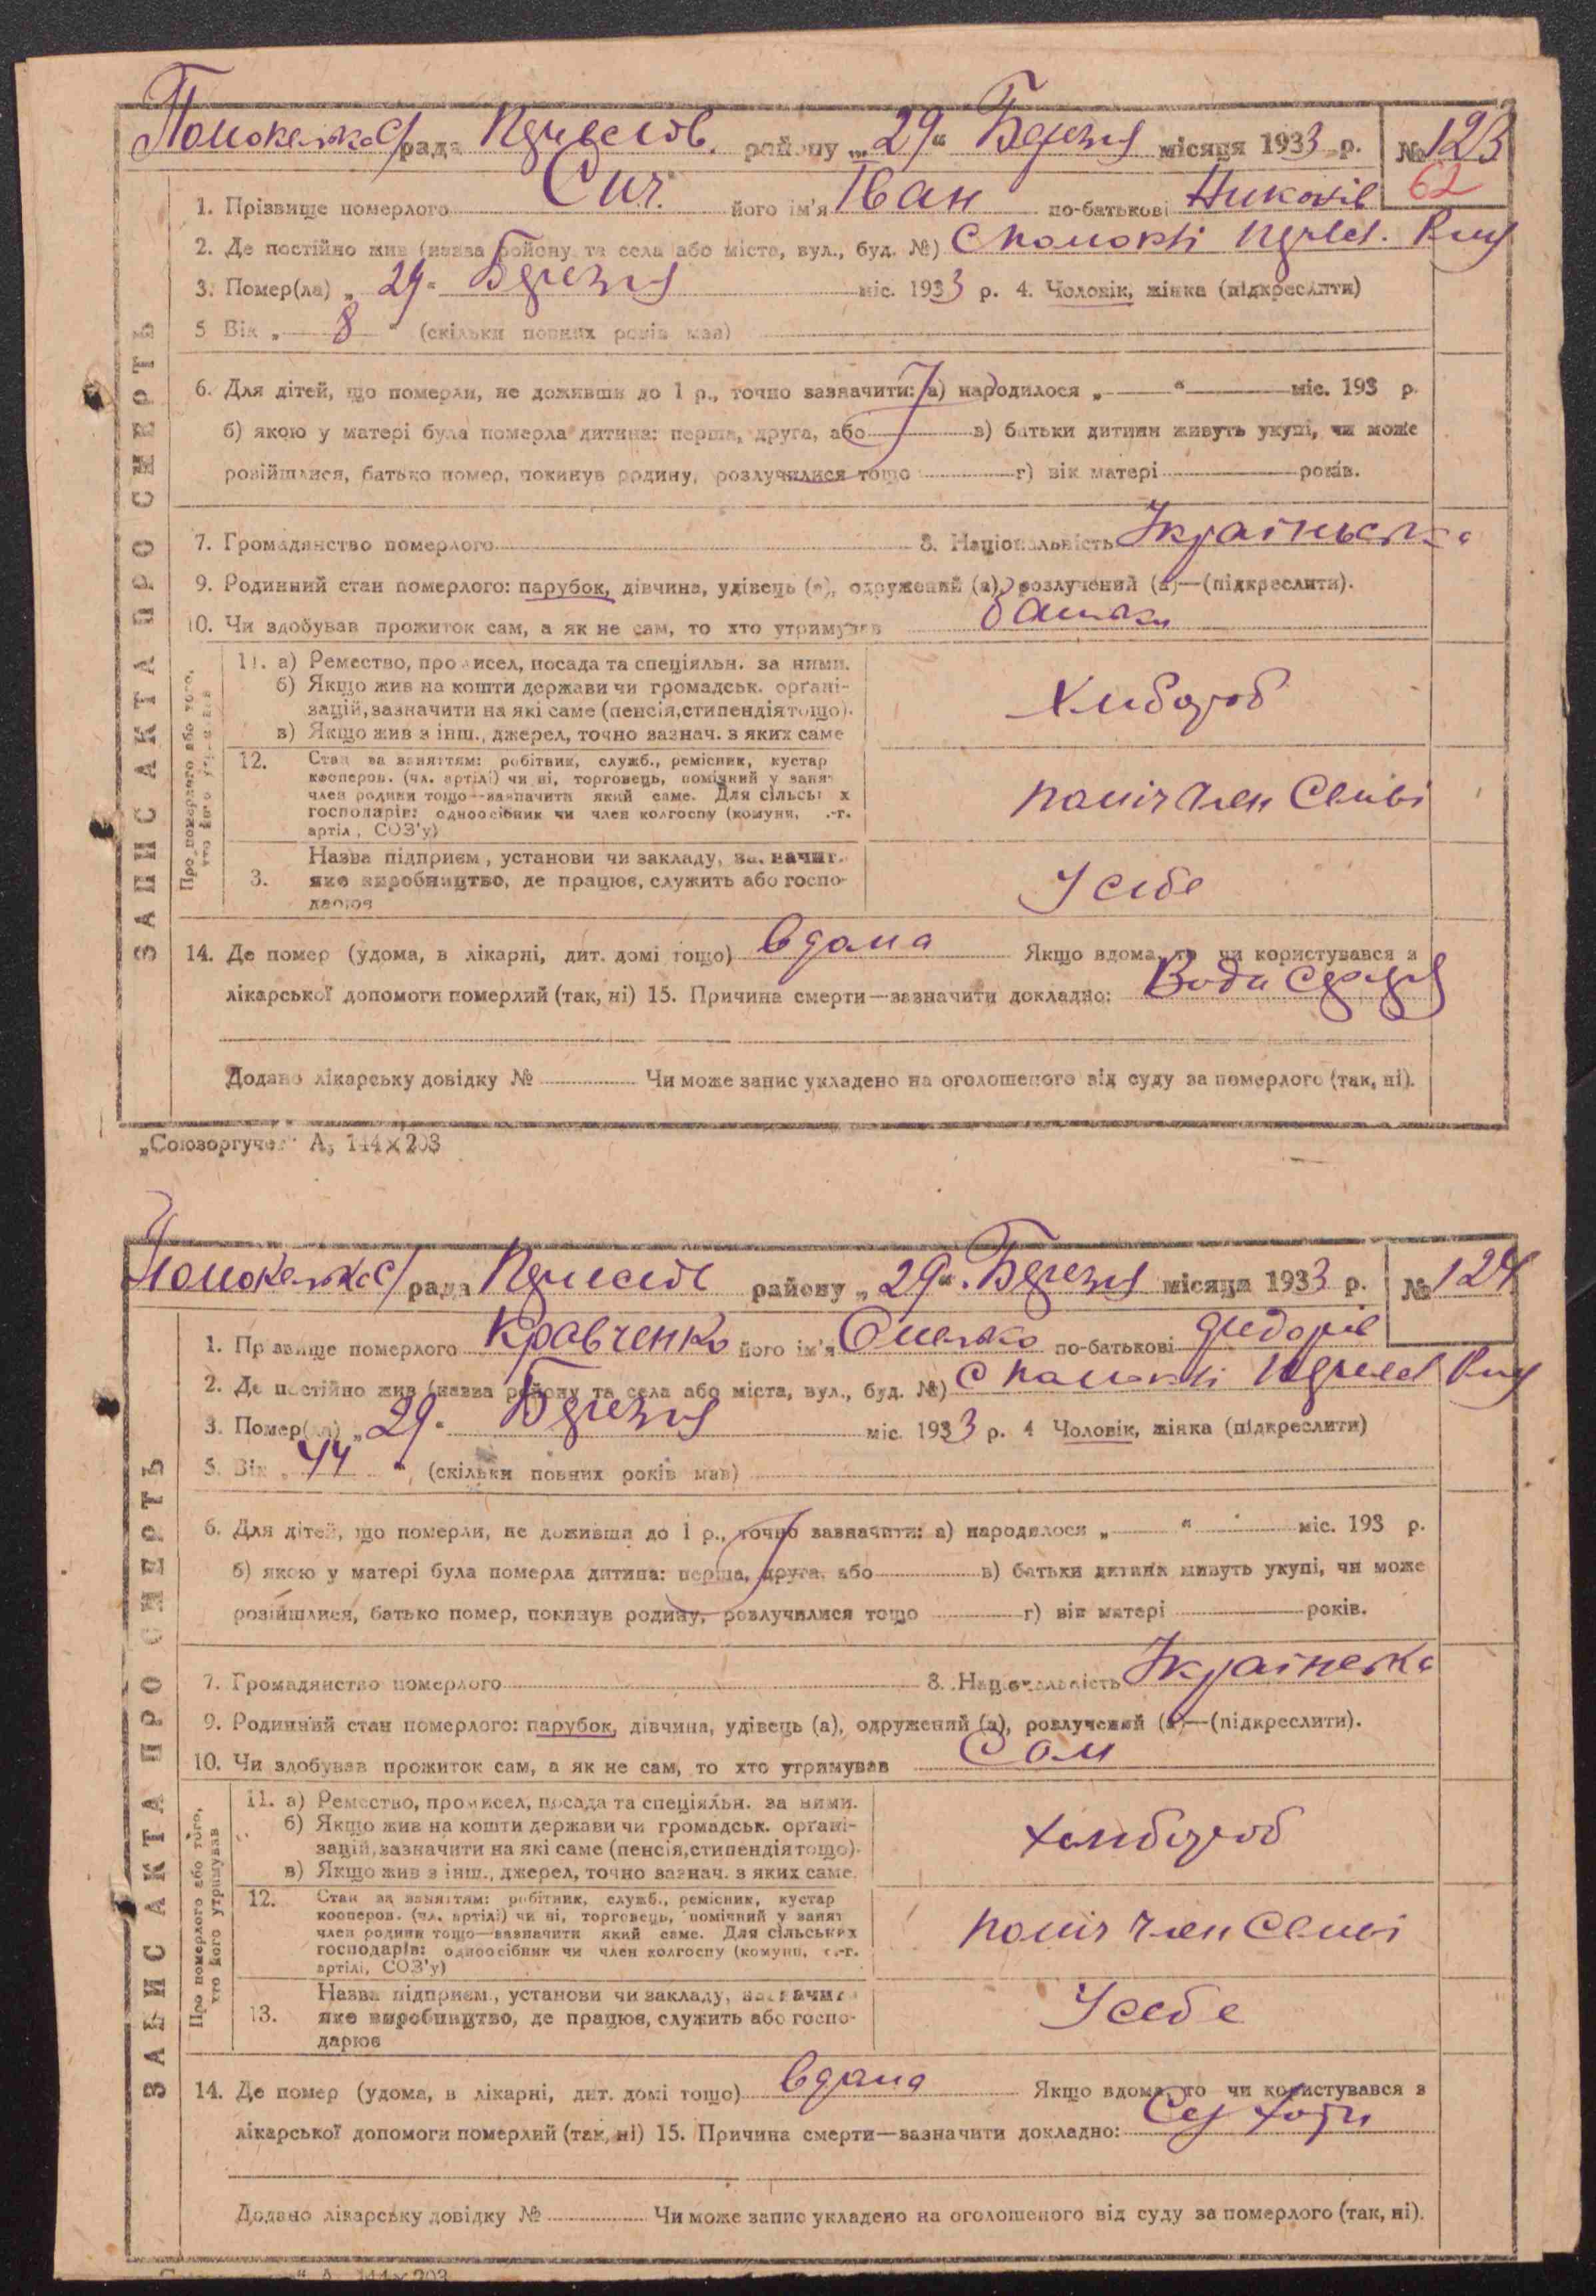 рада району „29“ Березня місяця 1933 р. № 123
62
1. Прізвище померлого Сич. його ім'я Іван по-батькові Никонів
2. Де постійно жив (назва району та села або міста, вул., буд. №) с
3. Помер(ла) „29“ Березня міс. 1933 р. 4. Чоловік, жінка (підкреслити)
5 Вік „ 8 “ (скільки повних років мав)
6. Для дітей, що померли, не доживши до 1 р., точно зазначити: а) народилося „ “ міс. 193 р.
б) якою у матері була померла дитина: перша, друга, або в) батьки дитини живуть укупі, чи може
розійшлися, батько помер, покинув родину, розлучилися тощо г) вік матері років.
7. Громадянство померлого 8. Національність Українська
9. Родинний стан померлого: парубок, дівчина, удівець (а), одружений (а), розлучений (а)—(підкреслити).
10. Чи здобував прожиток сам, а як не сам, то хто утримував батьки
ЗАПИС АКТА ПРО СМЕРТЬ
Про померлого або того, хто його утримував
11. а) Ремество, промисел, посада та спеціяльн. за ними.
б) Якщо жив на кошти держави чи громадськ. орґані-
зацій, зазначити на які саме (пенсія, стипендія тощо).
в) Якщо жив з інш., джерел, точно зазнач. з яких саме
Хлибороб
12. Стан за заняттям: робітник, служб., ремісник, кустар
кооперов. (чл. артілі) чи ні, торговець, помічний у занят
член родини тощо—зазначити який саме. Для сільськ х
господарів: одноосібник чи член колгоспу (комуни, .-г.
артіл , СОЗ'у)
поміч член Семьі
3. Назва підприєм , установи чи закладу, за. начит.
яке виробництво, де працює, служить або госпо-
дарює
У себе
14. Де помер (удома, в лікарні, дит. домі тощо) вдома Якщо вдома, то чи користувався з
лікарської допомоги померлий (так, ні) 15. Причина смерти—зазначити докладно:
Додано лікарську довідку № Чи може запис укладено на оголошеного від суду за померлого (так, ні).
„Союзоргуче “ А5 144×203
рада району „29“ Березня місяця 1933 р. № 124
1. Прізвище померлого Кравченко його ім'я по-батькові Федорів
2. Де постійно жив (назва району та села або міста, вул., буд. №) с
3. Помер(ла) „29“ Березня міс. 1933 р. 4 Чоловік, жінка (підкреслити)
5. Вік „ 44 “, (скільки повних років мав)
6. Для дітей, що померли, не доживши до 1 р., точно зазначити: а) народилося „ “ міс. 193 р.
б) якою у матері була померла дитина: перша, друга, або в) батьки дитини живуть укупі, чи може
розійшлися, батько помер, покинув родину, розлучилися тощо г) вік матері років.
7. Громадянство померлого 8. Національність Українська
9. Родинний стан померлого: парубок, дівчина, удівець (а), одружений (а), розлучений (а)—(підкреслити).
10. Чи здобував прожиток сам, а як не сам, то хто утримував Сам
ЗАПИС АКТА ПРО СМЕРТЬ
Про померлого або того, хто його утримував
11. а) Ремество, промисел, посада та спеціяльн. за ними.
б) Якщо жив на кошти держави чи громадськ. орґані-
зацій, зазначити на які саме (пенсія, стипендія тощо).
в) Якщо жив з інш., джерел, точно зазнач. з яких саме.
Хлибороб
12. Стан за заняттям: робітник, служб., ремісник, кустар
кооперов. (чл. артілі) чи ні, торговець, помічний у занят
член родини тощо—зазначити який саме. Для сільських
господарів: одноосібник чи член колгоспу (комуни, с.-г.
артілі, СОЗ'у)
поміч член Семьі
13. Назва підприєм., установи чи закладу, зазначит
яке виробництво, де працює, служить або госпо-
дарює
У себе
14. Де помер (удома, в лікарні, дит. домі тощо) вдома Якщо вдома, то чи користувався з
лікарської допомоги померлий (так, ні) 15. Причина смерти—зазначити докладно:
Додано лікарську довідку № Чи може запис укладено на оголошеного від суду за померлого (так, ні).
“ А 144×203